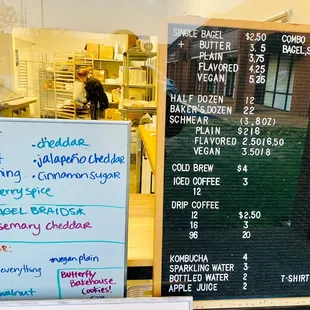 • cheddar
• jalapeño cheddar
• Cinnamon sugar
erry spice
AGEL BRAIDS*
semary cheddar
AR:
• vegan plain
everything
walnut
Butterfly
Bakehouse
Cookies!
SINGLE BAGEL $2.50
+ BUTTER 3.5
PLAIN 3.75
FLAVORED 4.25
VEGAN 5.25
HALF DOZEN 12
BAKER'S DOZEN 22
SCHMEAR (3,8OZ)
PLAIN $2|6
FLAVORED 2.50|6.50
VEGAN 3.50|8
COLD BREW $4
ICED COFFEE 3
12
DRIP COFFEE
12 $2.50
16 3
96 20
KOMBUCHA 4
SPARKLING WATER 3
BOTTLED WATER 2
APPLE JUICE 2
COMBO
BAGEL, S
T-SHIRT